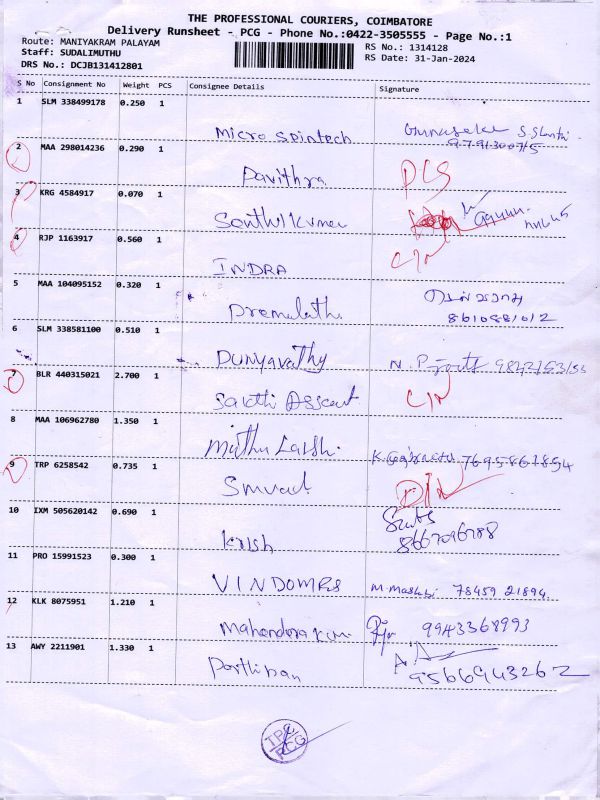 THE PROFESSIONAL COURIERS, COIMBATORE
Delivery Runsheet - PCG - Phone No.:0422-3505555 - Page No.:1
Route: MANIYAKRAM PALAYAM
RS No.: 1314128
Staff: SUDALIMUTHU
RS Date: 31-Jan-2024
DRS No.: DCJB131412801
S No Consignment No Weight PCS Consignee Details Signature
1 SLM 338499178 0.250 1
Micro Spintech
2 MAA 298014236 0.290 1
Pavithra DLS
3 KRG 4584917 0.070 1
4 RJP 1163917 0.560 1
INDRA C/N
5 MAA 104095152 0.320 1
8610881012
6 SLM 338581100 0.510 1
7 BLR 440315021 2.700 1
C/N
8 MAA 106962780 1.350 1
7695861854
9 TRP 6258542 0.735 1
D/N
10 IXM 505620142 0.690 1
Krish
11 PRO 15991523 0.300 1
78459 21894
12 KLK 8075951 1.210 1
9943368993
13 AWY 2211901 1.330 1
Parthiban 9566943262
TPC
PCG